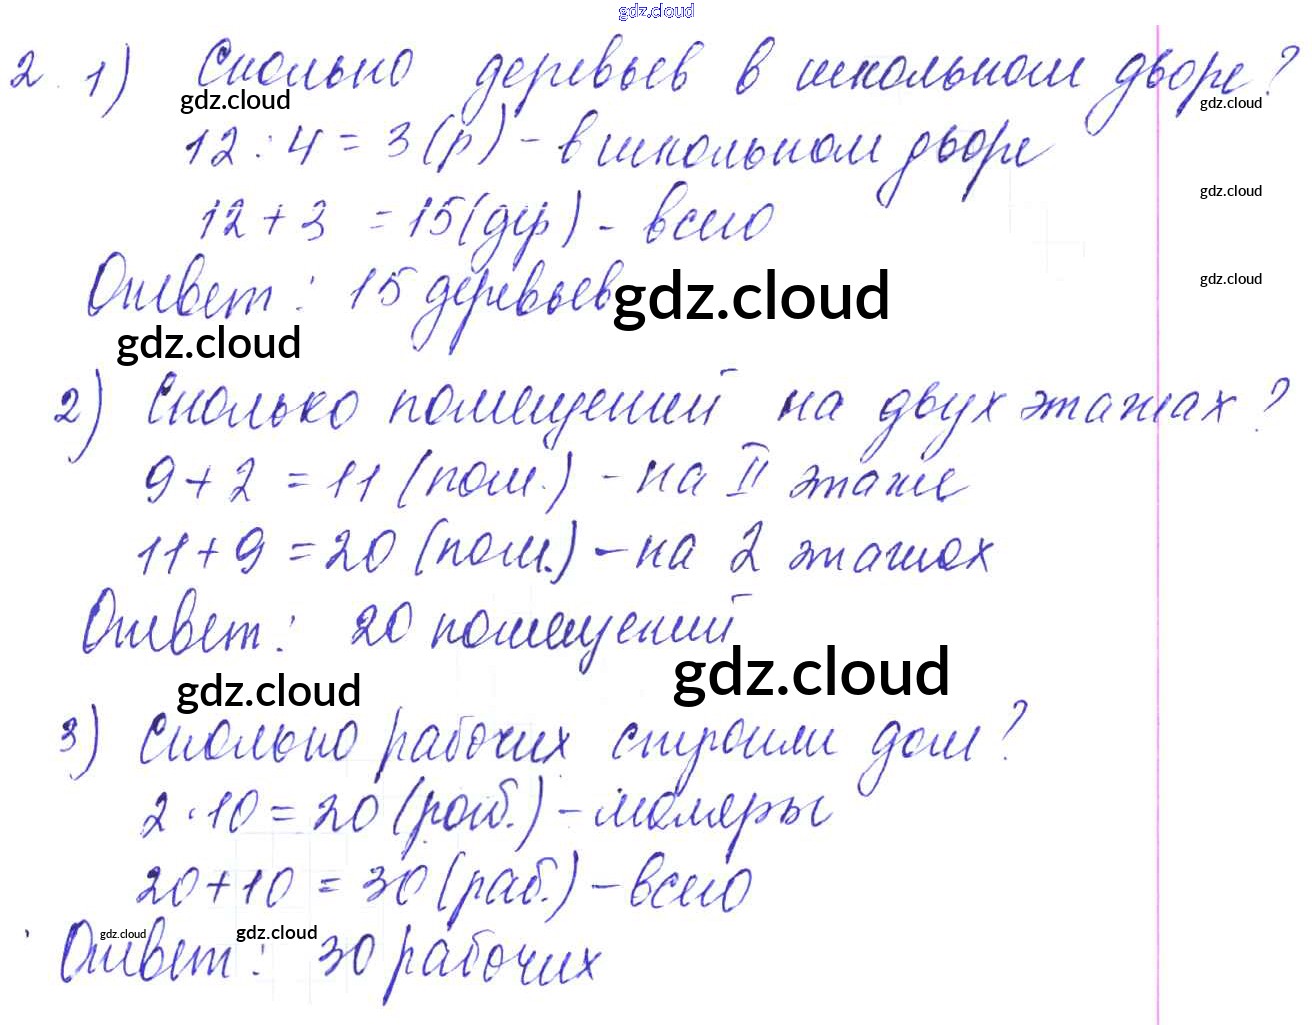 gdz.cloud
2. 1) Сколько деревьев в школьном дворе?
gdz.cloud
gdz.cloud
12 : 4 = 3 (р) - в школьном дворе
gdz.cloud
12 + 3 = 15 (дер) - всего
gdz.cloud
Ответ: 15 деревьев
gdz.cloud
gdz.cloud
2) Сколько помещений на двух этажах?
9 + 2 = 11 (пом.) - на II этаже
11 + 9 = 20 (пом.) - на 2 этажах
Ответ: 20 помещений
gdz.cloud
gdz.cloud
3) Сколько рабочих строили дом?
2 · 10 = 20 (раб.) - маляры
20 + 10 = 30 (раб.) - всего
gdz.cloud
gdz.cloud
Ответ: 30 рабочих